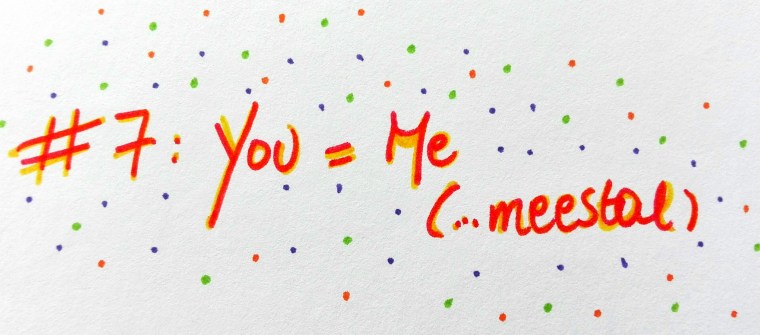 #7: You = Me
(...meestal)